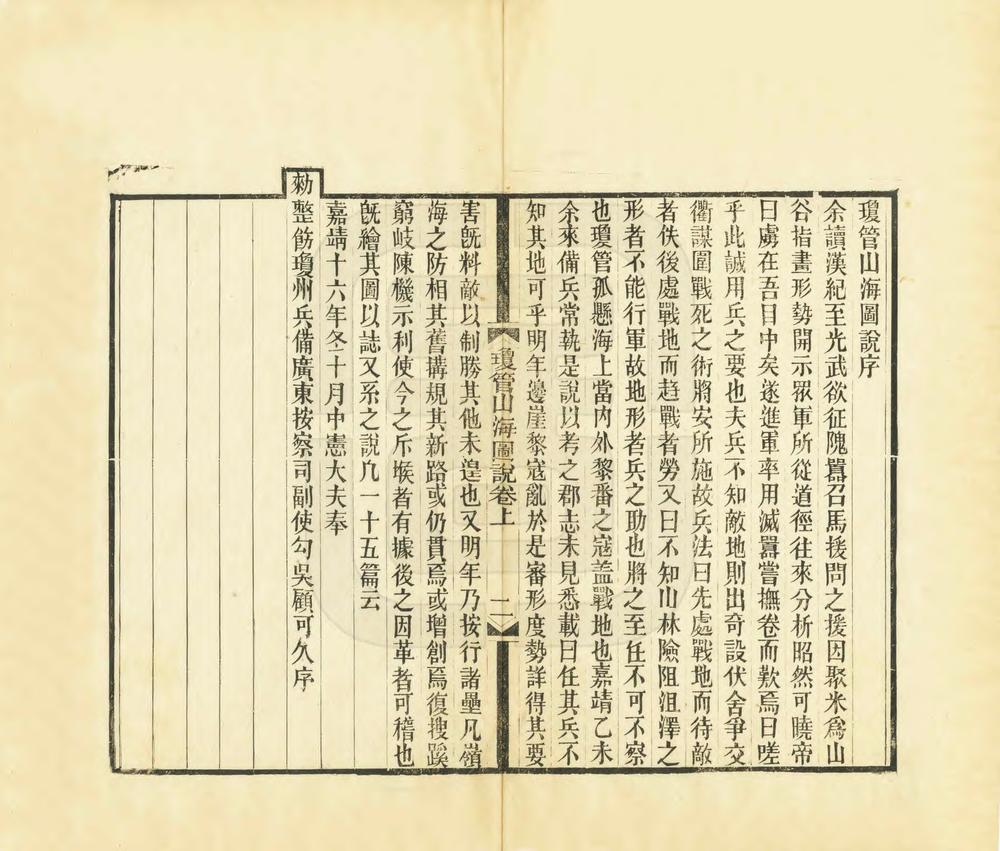 瓊管山海圖說序
余讀漢紀至光武欲征隗囂召馬援問之援因聚米爲山
谷指畫形勢開示眾軍所從道徑往來分析昭然可曉帝
曰虜在吾目中矣遂進軍率用滅囂嘗撫卷而歎焉曰嗟
乎此誠用兵之要也夫兵不知敵地則出奇設伏舍爭交
衢謀圍戰死之術將安所施故兵法曰先處戰地而待敵
者佚後處戰地而趋戰者勞又曰不知山林險阻沮澤之
形者不能行軍故地形者兵之助也將之至任不可不察
也瓊管孤懸海上當内外黎番之寇盖戰地也嘉靖乙未
余來備兵常執是說以考之郡志未見悉載曰任其兵不
知其地可乎明年邊崖黎寇亂於是審形度勢詳得其要
瓊管山海圖說卷上
二
害旣料敵以制勝其他未遑也又明年乃按行諸壘凡嶺
海之防相其舊搆規其新路或仍貫焉或增創焉復搜蹊
窮岐陳機示利使今之斥堠者有據後之因革者可稽也
旣繪其圖以誌又系之說凡一十五篇云
嘉靖十六年冬十月中憲大夫奉
勑整飭瓊州兵備廣東按察司副使勾吳顧可久序